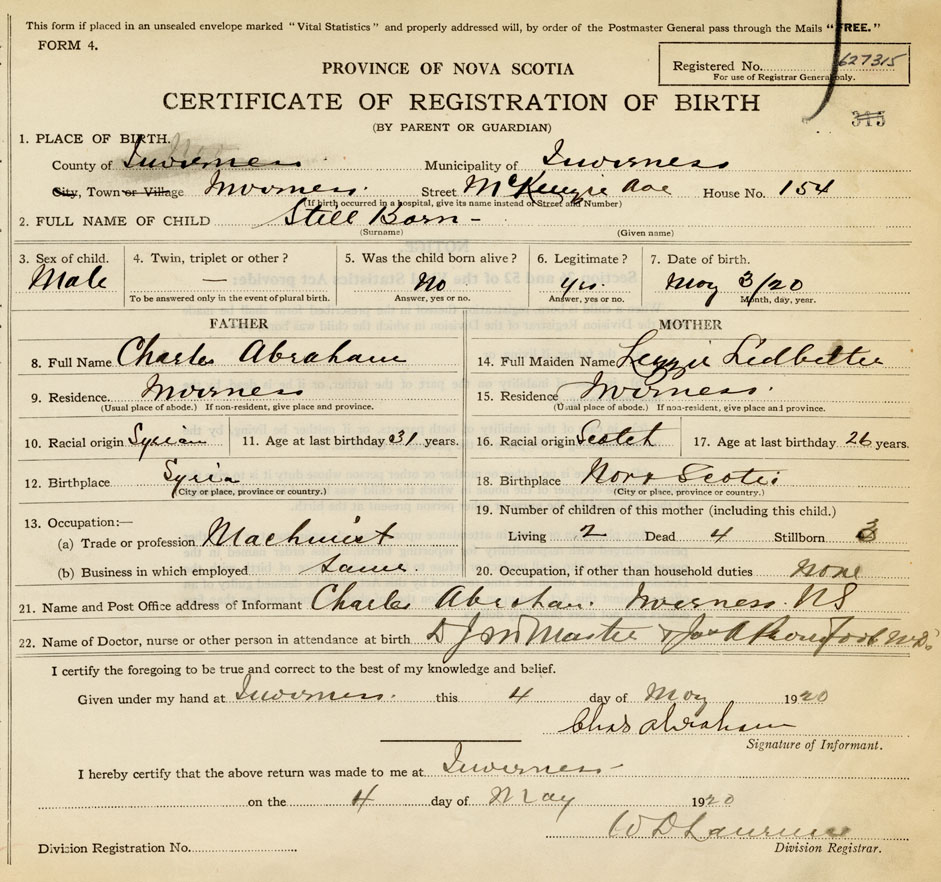 This form if placed in an unsealed envelope marked "Vital Statistics" and properly addressed will, by order of the Postmaster General pass through the Mails "FREE."
FORM 4.
Registered No. 627315
For use of Registrar General only.
PROVINCE OF NOVA SCOTIA
CERTIFICATE OF REGISTRATION OF BIRTH
315
(BY PARENT OR GUARDIAN)
1. PLACE OF BIRTH.
County of Inverness Municipality of Inverness
City, Town or Village Inverness. Street McKenzie Ave House No. 154
(If birth occurred in a hospital, give its name instead of Street and Number)
2. FULL NAME OF CHILD Still Born -
(Surname) (Given name)
3. Sex of child. 4. Twin, triplet or other? 5. Was the child born alive? 6. Legitimate? 7. Date of birth.
Male — No Yes. May 3/20
To be answered only in the event of plural birth. Answer, yes or no. Answer, yes or no. Month, day, year.
FATHER MOTHER
8. Full Name Charles Abraham 14. Full Maiden Name Lizzie Ledbetter
9. Residence. Inverness 15. Residence Inverness.
(Usual place of abode.) If non-resident, give place and province. (Usual place of abode.) If non-resident, give place and province.
10. Racial origin Syrian 11. Age at last birthday 31 years. 16. Racial origin Scotch 17. Age at last birthday 26 years.
12. Birthplace Syria 18. Birthplace Nova Scotia
(City or place, province or country.) (City or place, province or country.)
13. Occupation:— 19. Number of children of this mother (including this child.)
(a) Trade or profession Machinist Living 2 Dead 4 Stillborn 3
(b) Business in which employed same. 20. Occupation, if other than household duties None
21. Name and Post Office address of Informant Charles Abraham. Inverness. NS
22. Name of Doctor, nurse or other person in attendance at birth D J McMaster & Jas A Proudfoot M.D.
I certify the foregoing to be true and correct to the best of my knowledge and belief.
Given under my hand at Inverness. this 4 day of May 1920
Chas Abraham
Signature of Informant.
I hereby certify that the above return was made to me at Inverness
on the 4 day of May 1920
W D Lawrence
Division Registration No. Division Registrar.